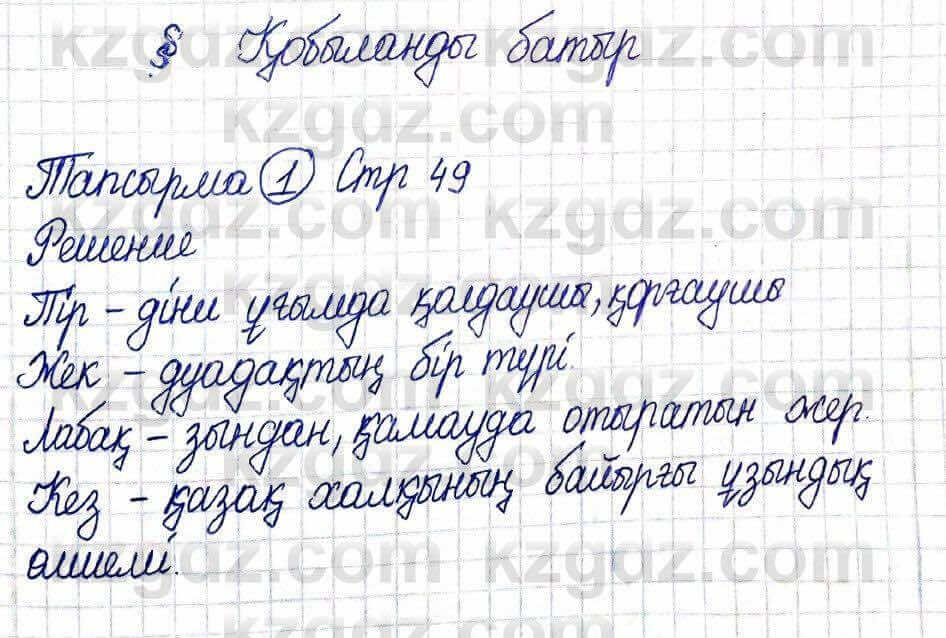 § Қобыланды батыр
Тапсырма 1 Стр 49
Решение
Пір - діни ұғымда қолдаушы, қорғаушы
Жек - дуадақтың бір түрі.
Лабақ - зындан, қамауда отыратын жер.
Кез - қазақ халқының байырғы ұзындық
өлшемі.
kzgdz.com